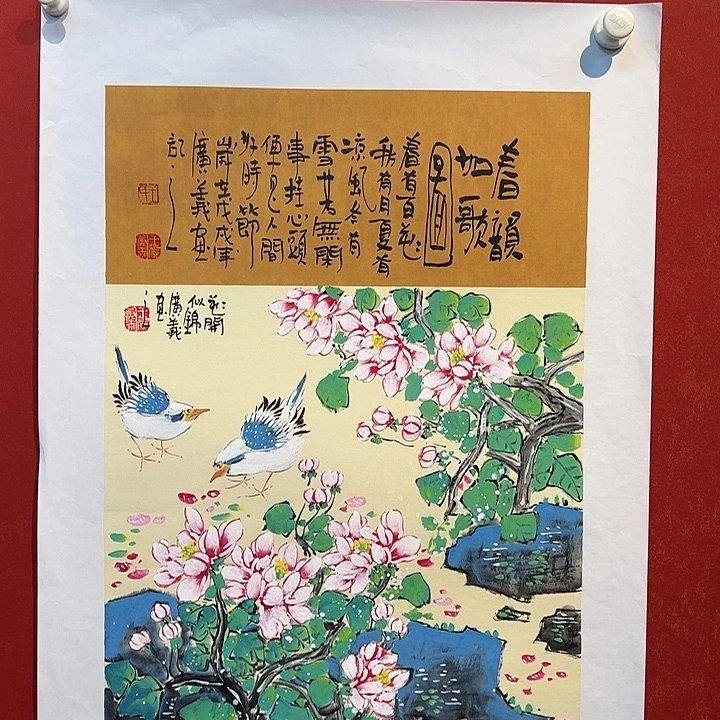 春韻
如歌
春有百花
秋有月夏有
涼風冬有
雪若無閑
事挂心頭
便是人間
好時節
歲在戊戌年
廣義画
記
花開
似錦
廣義
画